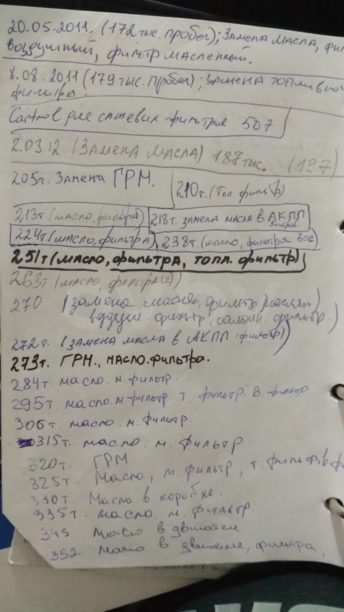 20.05.2011. (172 тыс. пробег); Замена масла, фи
воздушный, фильтр масленный.
8.08.2011 (179 тыс. пробег); замена топливного
фильтра.
для фильтра 507
2.03.12 (Замена масла) 187 тыс. (197)
205т. Замена ГРМ.
210т. (топ. фильтр)
213т (масло, фильтра)
218т. замена масла в АКПП
224т (масло, фильтра)
238т. (масло, фильтра все)
251т (масло, фильтра, топл. фильтр)
263т (масло, фильтра)
270 (замена масло, фильтр
фильтр, салон. фильтр.)
272т. (замена масла в АКПП фильтр)
273т. ГРМ., масло. фильтра.
284т масло. м. фильтр.
295т. масло. м. фильтр. т. фильтр. в. фильтр
306т. масло. м. фильтр
315т. масло. м. фильтр.
320т. ГРМ
325т. Масло, м фильтр, т. фильтр, в ф
330т. Масло в коробке.
335т. масло. м. фильтр
345 масло в двигателе
352 масло в двигателе, фильтра,